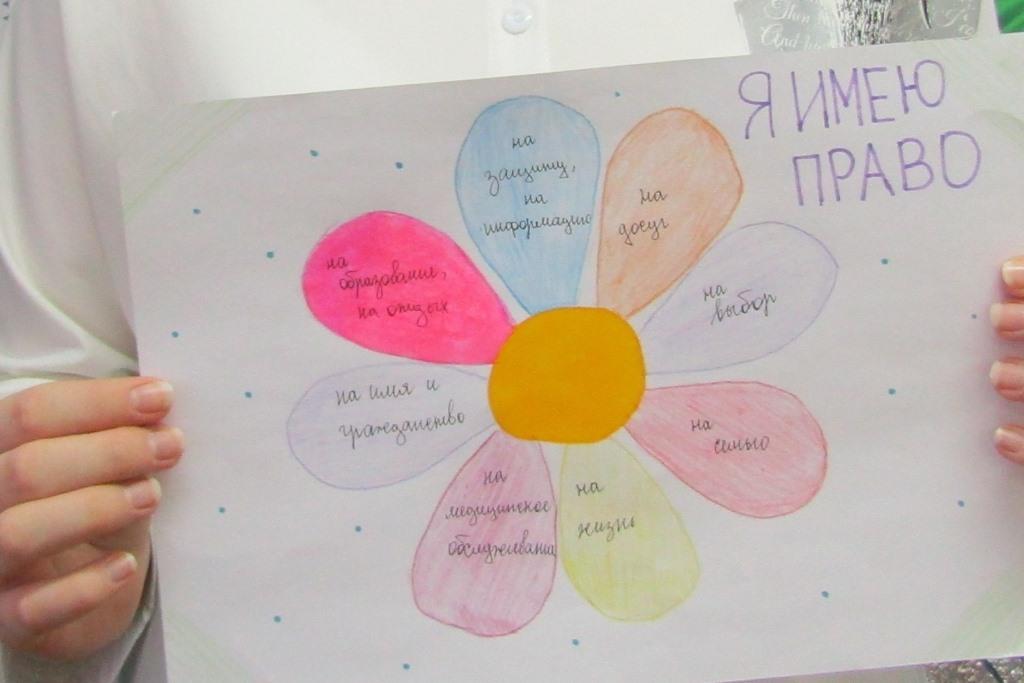 Then
And
Я ИМЕЮ
ПРАВО
на
защиту,
на
информацию
на
досуг
на
выбор
на
семью
на
жизнь
на
медицинское
обслуживание
на имя и
гражданство
на
образование,
на отдых